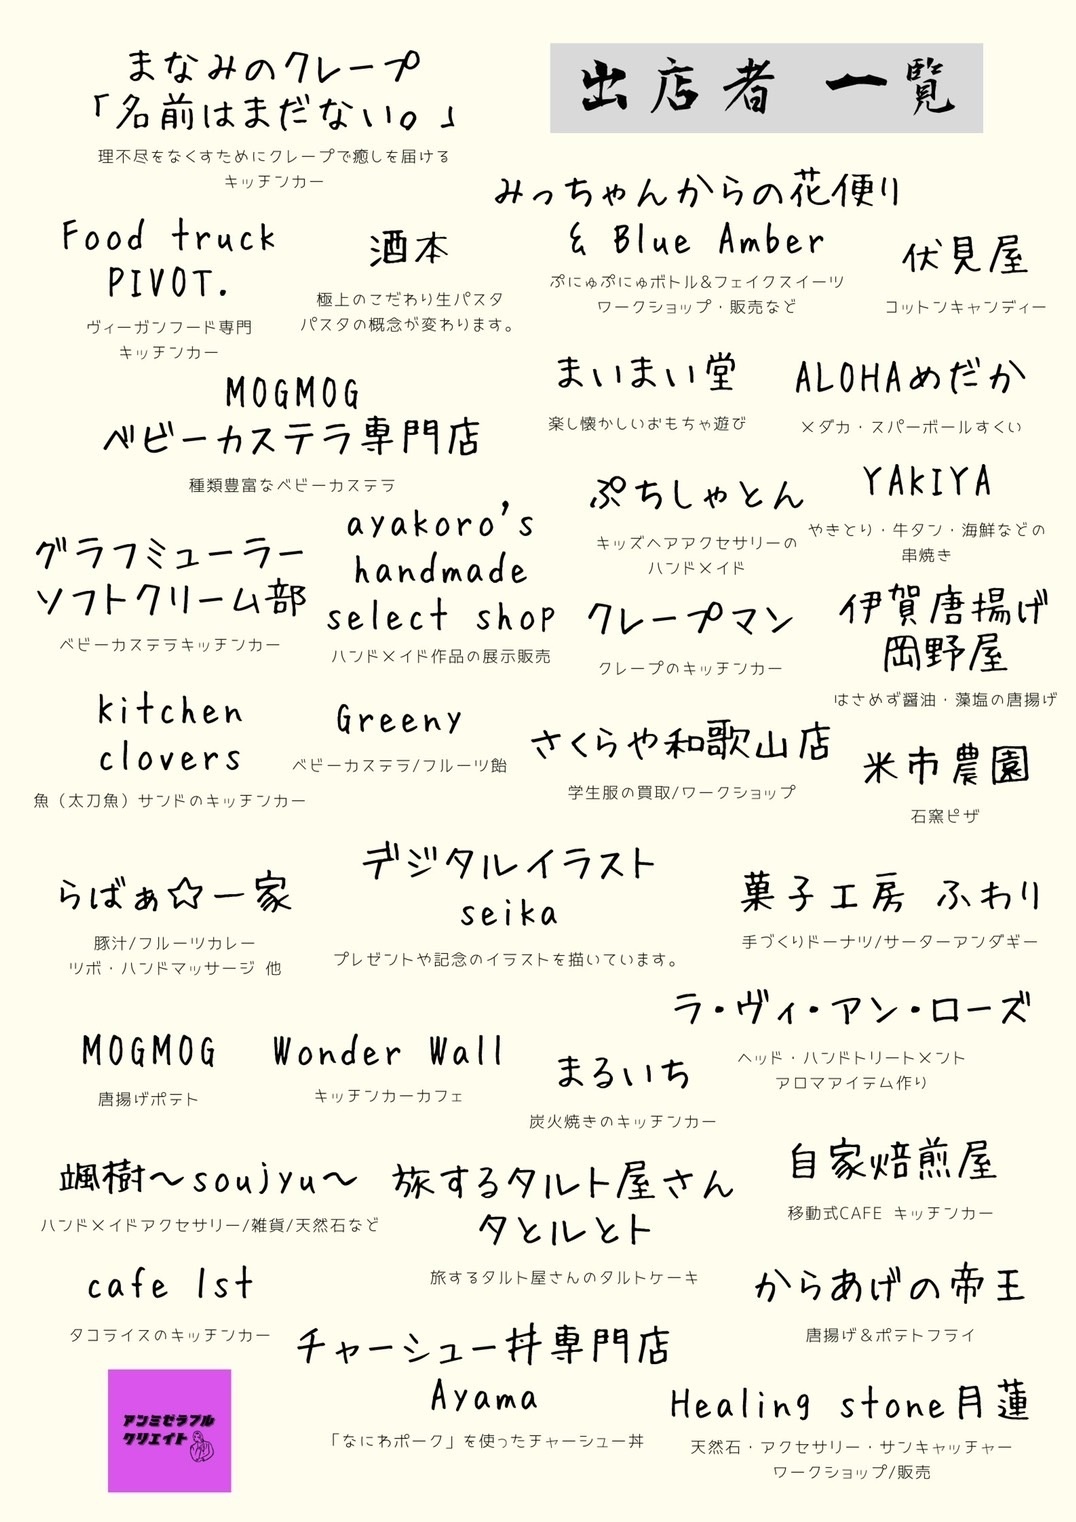 出店者 一覧
まなみのクレープ
「名前はまだない。」
理不尽をなくすためにクレープで癒しを届ける
キッチンカー
みっちゃんからの花便り
& Blue Amber
ぷにゅぷにゅボトル&フェイクスイーツ
ワークショップ・販売など
Food truck
PIVOT.
ヴィーガンフード専門
キッチンカー
酒本
極上のこだわり生パスタ
パスタの概念が変わります。
伏見屋
コットンキャンディー
MOGMOG
ベビーカステラ専門店
種類豊富なベビーカステラ
まいまい堂
楽し懐かしいおもちゃ遊び
ALOHAめだか
メダカ・スパーボールすくい
ぷちしゃとん
キッズヘアアクセサリーの
ハンドメイド
YAKIYA
やきとり・牛タン・海鮮などの
串焼き
グラフミューラー
ソフトクリーム部
ベビーカステラキッチンカー
ayakoro's
handmade
select shop
ハンドメイド作品の展示販売
クレープマン
クレープのキッチンカー
伊賀唐揚げ
岡野屋
はさめず醤油・藻塩の唐揚げ
kitchen
clovers
魚（太刀魚）サンドのキッチンカー
Greeny
ベビーカステラ/フルーツ飴
さくらや和歌山店
学生服の買取/ワークショップ
米市農園
石窯ピザ
らばぁ☆一家
豚汁/フルーツカレー
ツボ・ハンドマッサージ 他
デジタルイラスト
seika
プレゼントや記念のイラストを描いています。
菓子工房 ふわり
手づくりドーナツ/サーターアンダギー
ラ・ヴィ・アン・ローズ
ヘッド・ハンドトリートメント
アロマアイテム作り
MOGMOG
唐揚げポテト
Wonder Wall
キッチンカーカフェ
まるいち
炭火焼きのキッチンカー
颯樹〜soujyu〜
ハンドメイドアクセサリー/雑貨/天然石など
旅するタルト屋さん
タとルとト
旅するタルト屋さんのタルトケーキ
自家焙煎屋
移動式CAFE キッチンカー
cafe 1st
タコライスのキッチンカー
からあげの帝王
唐揚げ＆ポテトフライ
チャーシュー丼専門店
Ayama
「なにわポーク」を使ったチャーシュー丼
Healing stone月蓮
天然石・アクセサリー・サンキャッチャー
ワークショップ/販売
アンミゼラブル
クリエイト